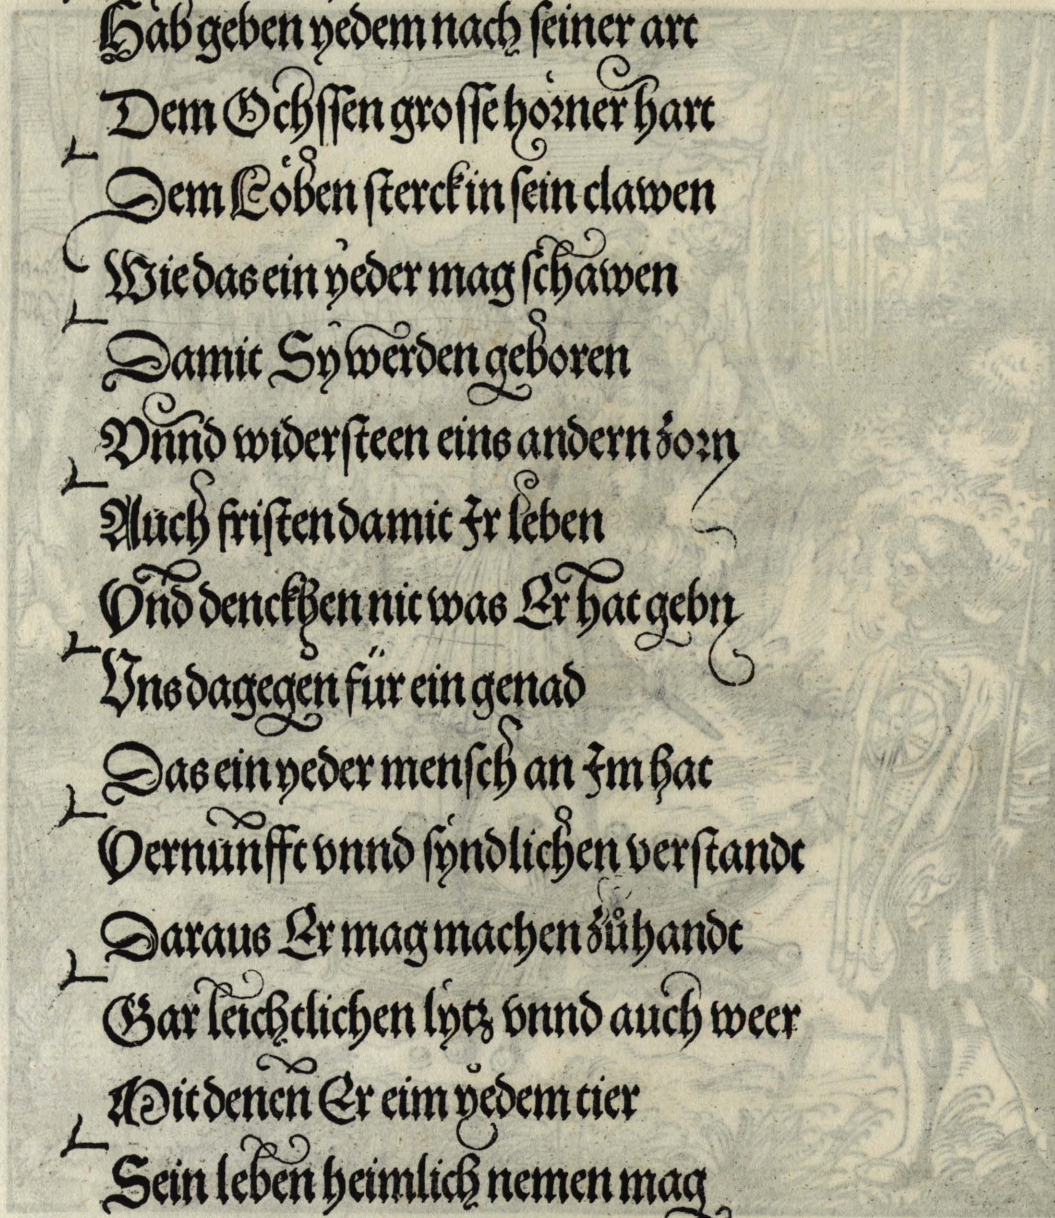 Hab geben yedem nach seiner art
Dem Ochssen grosse hörner hart
Dem Löben sterck in sein clawen
Wie das ein yeder mag schawen
Damit Sy werden geboren
Vnnd widersteen eins andern zorn
Auch fristen damit Ir leben
Vnd denckhen nit was Er hat gebn
Vns dagegen für ein genad
Das ein yeder mensch an Im hat
Vernunfft vnnd syndlichen verstandt
Daraus Er mag machen zůhandt
Gar leichtlichen lytz vnnd auch weer
Mit denen Er eim yedem tier
Sein leben heimlich nemen mag